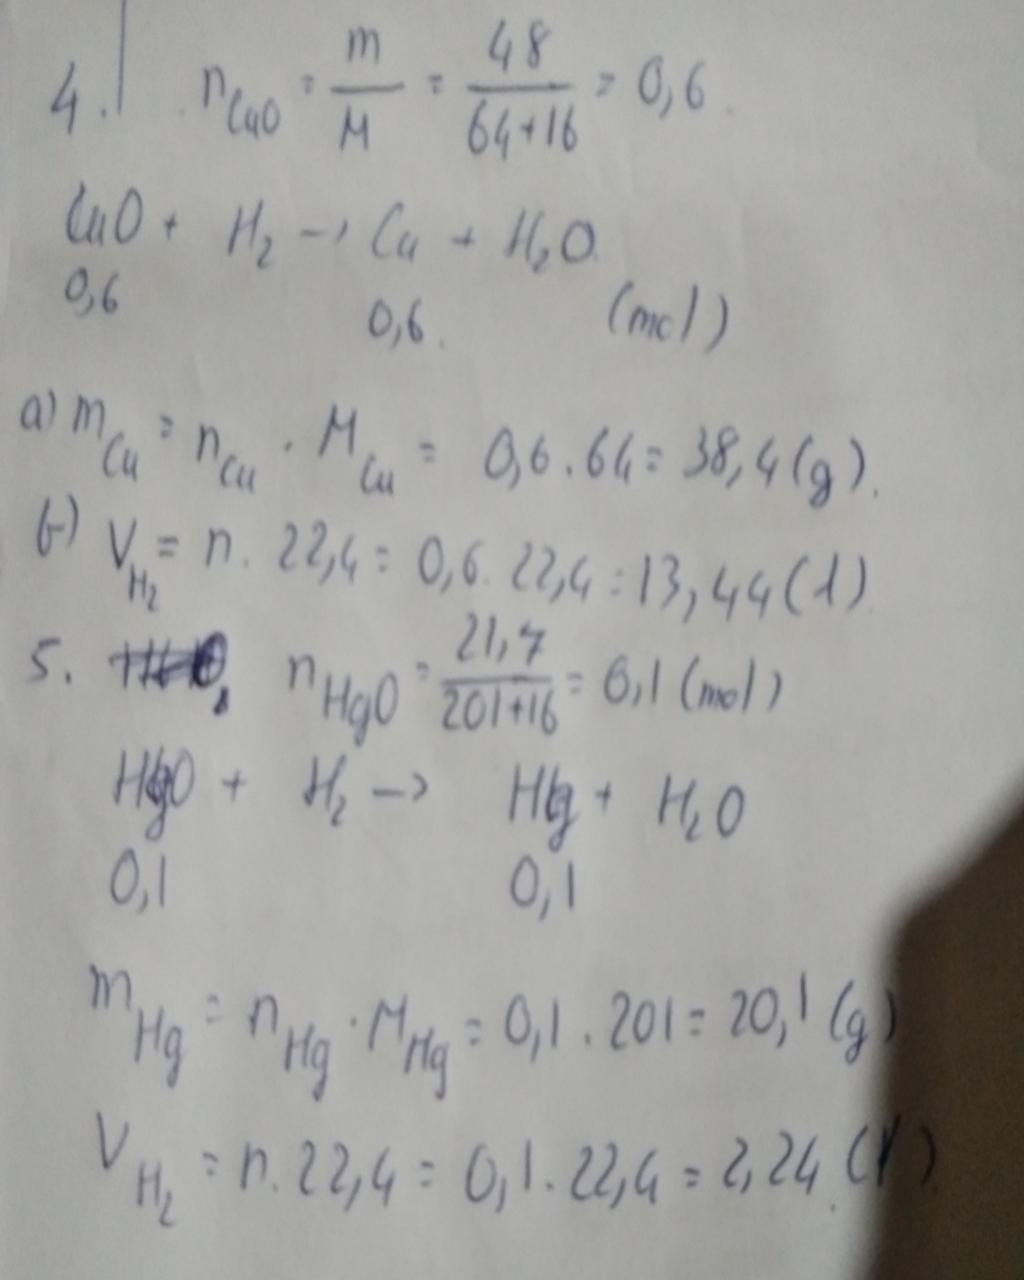 4. n_CuO = m/M = 48/(64+16) = 0,6.
CuO + H₂ → Cu + H₂O
0,6 0,6. (mol)
a) m_Cu = n_Cu . M_Cu = 0,6 . 64 = 38,4 (g).
b) V_H₂ = n . 22,4 = 0,6 . 22,4 = 13,44 (l)
5. n_HgO = 21,7/(201+16) = 0,1 (mol)
HgO + H₂ → Hg + H₂O
0,1 0,1
m_Hg = n_Hg . M_Hg = 0,1 . 201 = 20,1 (g)
V_H₂ = n . 22,4 = 0,1 . 22,4 = 2,24 (l).